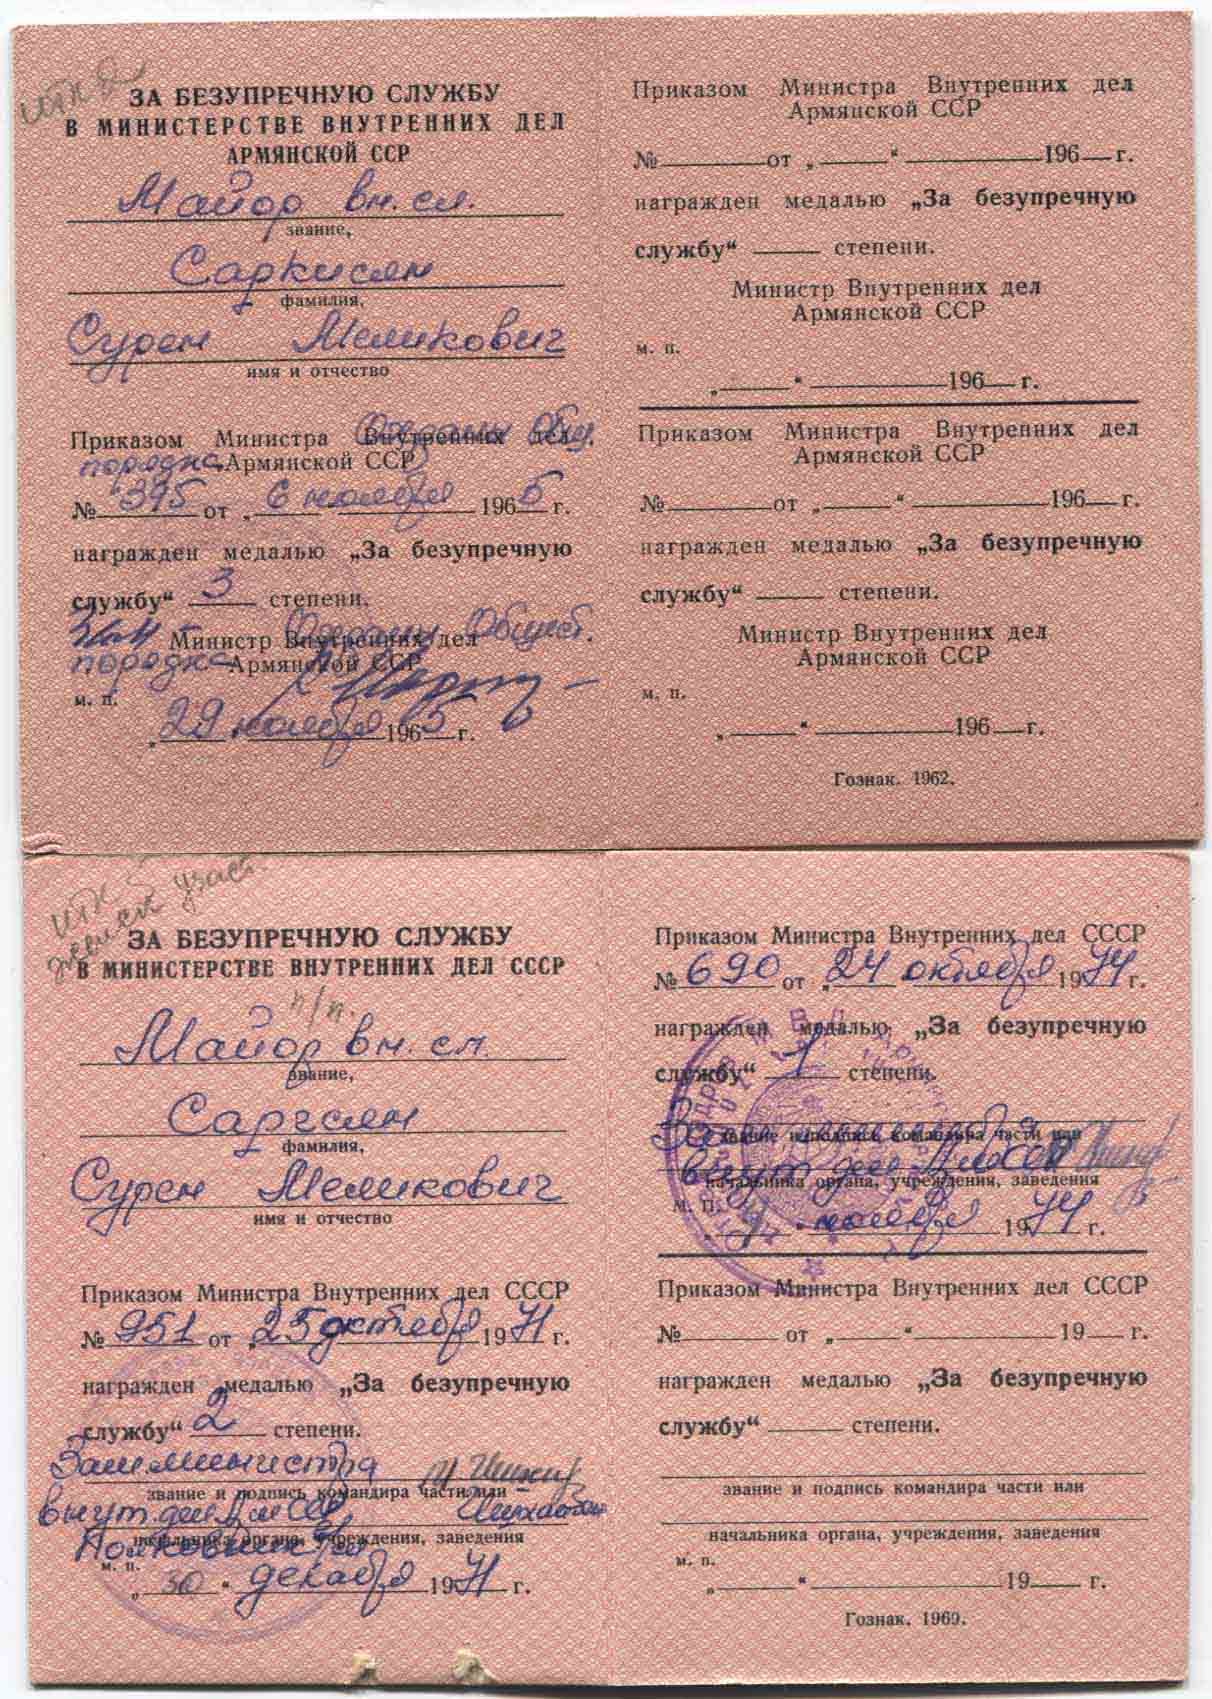 ИТК 2
ЗА БЕЗУПРЕЧНУЮ СЛУЖБУ
В МИНИСТЕРСТВЕ ВНУТРЕННИХ ДЕЛ
АРМЯНСКОЙ ССР
Майор вн. сл.
звание,
Саркисян
фамилия,
Сурен Меликович
имя и отчество
Приказом Министра Внутренних дел Охраны Общ.
порядка Армянской ССР
№ 395 от „ 6 ноября 1965 г.
награжден медалью „За безупречную
службу“ 3 степени.
Зам Министр Внутренних дел Охраны Общест.
порядка Армянской ССР
м. п.
„ 29 ноября 1965 г.
Приказом Министра Внутренних дел
Армянской ССР
№ от „ “ 196 г.
награжден медалью „За безупречную
службу“ степени.
Министр Внутренних дел
Армянской ССР
м. п.
„ “ 196 г.
Приказом Министра Внутренних дел
Армянской ССР
№ от „ “ 196 г.
награжден медалью „За безупречную
службу“ степени.
Министр Внутренних дел
Армянской ССР
м. п.
„ “ 196 г.
Гознак. 1962.
ИТК
участ.
ЗА БЕЗУПРЕЧНУЮ СЛУЖБУ
В МИНИСТЕРСТВЕ ВНУТРЕННИХ ДЕЛ СССР
п/п.
Майор вн. сл.
звание,
Саргсян
фамилия,
Сурен Меликович
имя и отчество
Приказом Министра Внутренних дел СССР
№ 951 от „ 25 октября 1971 г.
награжден медалью „За безупречную
службу“ 2 степени.
Зам министра
звание и подпись командира части или
внут. дел Арм ССР
начальника органа, учреждения, заведения
Полковник
м. п.
„ 30 “ декабря 1971 г.
Приказом Министра Внутренних дел СССР
№ 690 от „ 24 октября 1974 г.
награжден медалью „За безупречную
службу“ 1 степени.
Зам министра
звание и подпись командира части или
внут. дел Арм ССР
начальника органа, учреждения, заведения
М. П.
„ ноября 1974 г.
Приказом Министра Внутренних дел СССР
№ от „ “ 19 г.
награжден медалью „За безупречную
службу“ степени.
звание и подпись командира части или
начальника органа, учреждения, заведения
м. п.
„ “ 19 г.
Гознак. 1969.